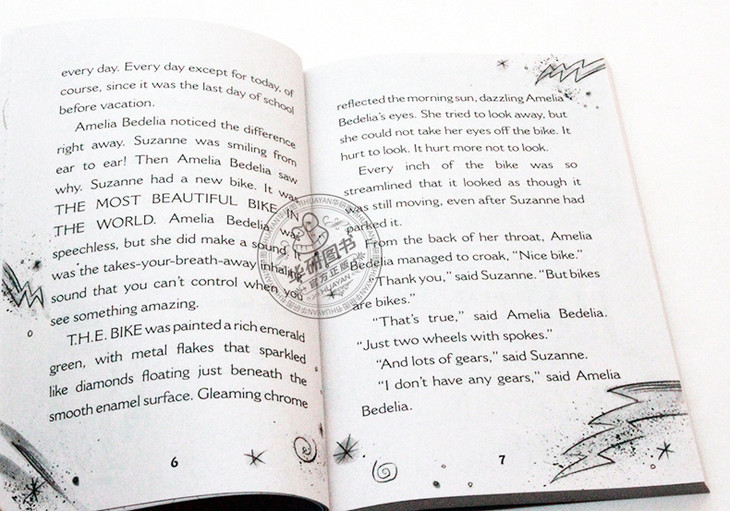 every day. Every day except for today, of
course, since it was the last day of school
before vacation.
Amelia Bedelia noticed the difference
right away. Suzanne was smiling from
ear to ear! Then Amelia Bedelia saw
why. Suzanne had a new bike. It was
THE MOST BEAUTIFUL BIKE IN
THE WORLD. Amelia Bedelia was
speechless, but she did make a sound. It
was the takes-your-breath-away inhaling
sound that you can't control when you
see something amazing.
T.H.E. BIKE was painted a rich emerald
green, with metal flakes that sparkled
like diamonds floating just beneath the
smooth enamel surface. Gleaming chrome
6
reflected the morning sun, dazzling Amelia
Bedelia's eyes. She tried to look away, but
she could not take her eyes off the bike. It
hurt to look. It hurt more not to look.
Every inch of the bike was so
streamlined that it looked as though it
was still moving, even after Suzanne had
parked it.
From the back of her throat, Amelia
Bedelia managed to croak, "Nice bike."
"Thank you," said Suzanne. "But bikes
are bikes."
"That's true," said Amelia Bedelia.
"Just two wheels with spokes."
"And lots of gears," said Suzanne.
"I don't have any gears," said Amelia
Bedelia.
7
华研图书
官方正版
HUAYAN